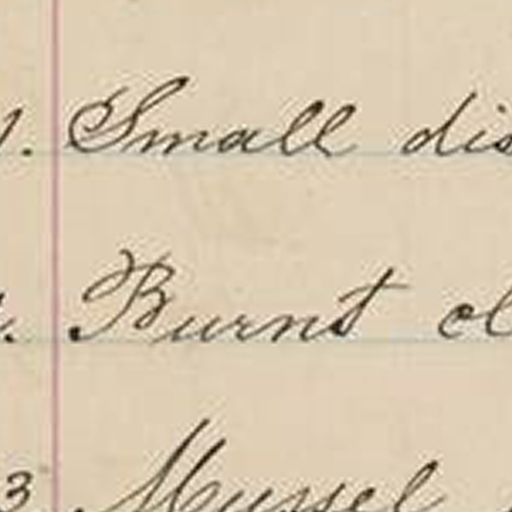 1. Small dis
Burnt cl
3 Mussel